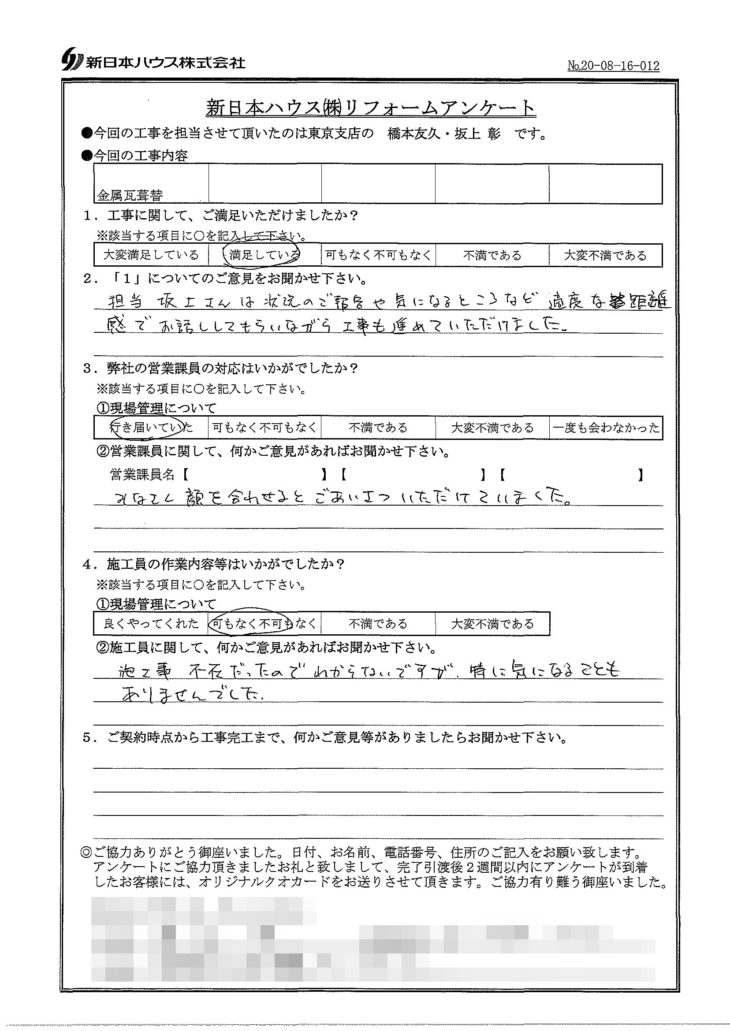 新日本ハウス株式会社
№20-08-16-012
新日本ハウス㈱リフォームアンケート
●今回の工事を担当させて頂いたのは東京支店の 橋本友久・坂上 彰 です。
●今回の工事内容
金属瓦葺替
1．工事に関して、ご満足いただけましたか？
※該当する項目に○を記入して下さい。
大変満足している 満足している 可もなく不可もなく 不満である 大変不満である
2．「1」についてのご意見をお聞かせ下さい。
担当 坂上さんは状況のご報告や気になるところなど 適度な距離
感でお話ししてもらいながら工事も進めていただけました。
3．弊社の営業課員の対応はいかがでしたか？
※該当する項目に○を記入して下さい。
①現場管理について
行き届いていた 可もなく不可もなく 不満である 大変不満である 一度も会わなかった
②営業課員に関して、何かご意見があればお聞かせ下さい。
営業課員名【 】【 】【 】
顔を合わせるとごあいさついただけていました。
4．施工員の作業内容等はいかがでしたか？
※該当する項目に○を記入して下さい。
①現場管理について
良くやってくれた 可もなく不可もなく 不満である 大変不満である
②施工員に関して、何かご意見があればお聞かせ下さい。
施工事 不在だったのでわからないですが、特に気になることも
ありませんでした.
5．ご契約時点から工事完工まで、何かご意見等がありましたらお聞かせ下さい。
◎ご協力ありがとう御座いました。日付、お名前、電話番号、住所のご記入をお願い致します。
アンケートにご協力頂きましたお礼と致しまして、完了引渡後２週間以内にアンケートが到着
したお客様には、オリジナルクオカードをお送りさせて頂きます。ご協力有り難う御座いました。